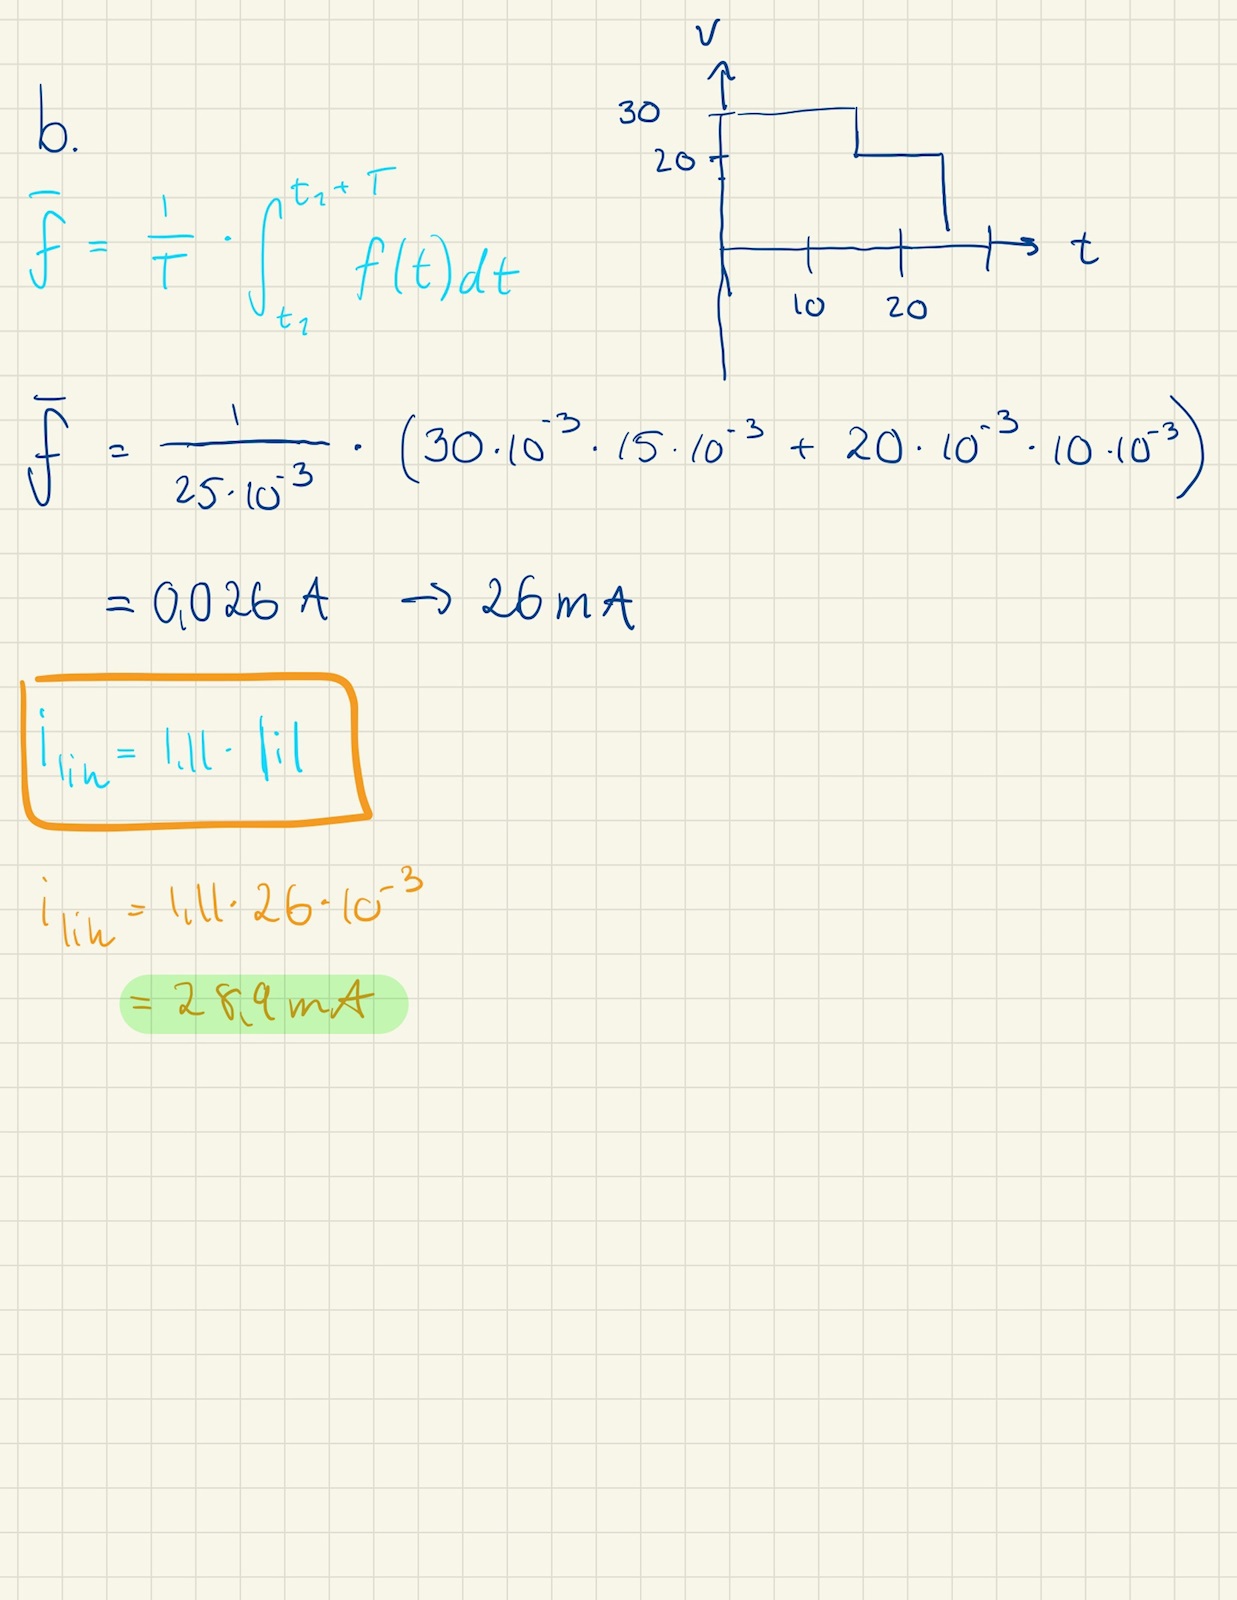 b.
f̄ = 1/T · ∫_{t₁}^{t₁+T} f(t)dt
V
30
20
10 20
t
f̄ = 1/(25·10⁻³) · (30·10⁻³ · 15·10⁻³ + 20·10⁻³ · 10·10⁻³)
= 0,026 A → 26 mA
i_lin = 1,11 · |i|
i_lin = 1,11 · 26 · 10⁻³
= 28,9 mA